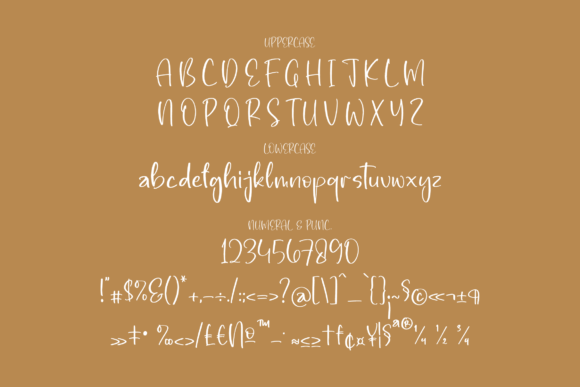 UPPERCASE
ABCDEFGHIJKLM
NOPQRSTUWXYZ
LOWERCASE
abcdefghijklmnopqrstuvwxyz
NUMERAL & PUNC.
1234567890
!"#$%&()*+,-÷./:;<=>?@[\]^_`{}¡~§©«¬±¶
»‡•‰<>/£€№™_·≈≤≥†ƒ¢¤¥|§ª®¼ ½ ¾